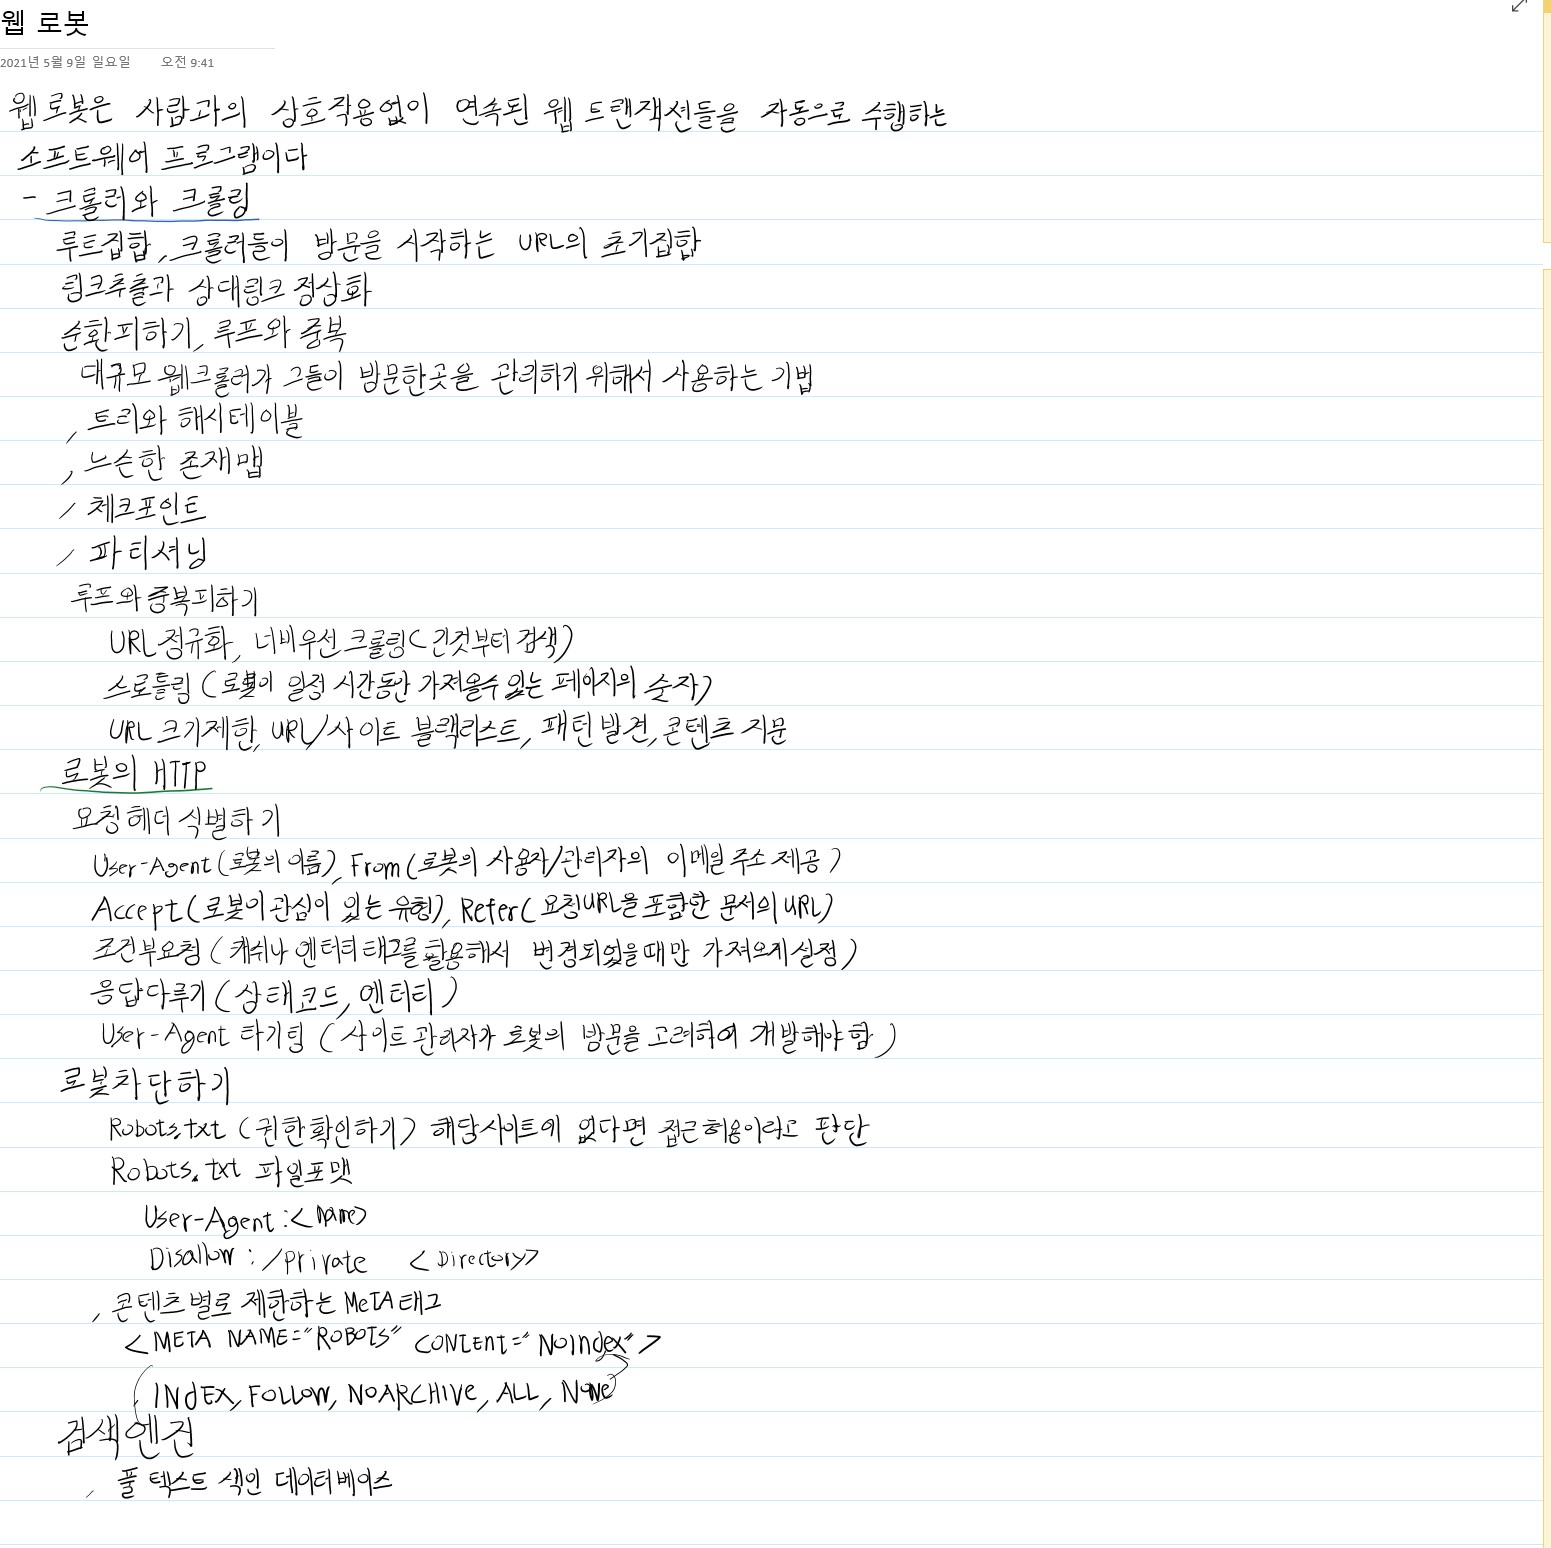 웹 로봇
2021년 5월 9일 일요일 오전 9:41
웹 로봇은 사람과의 상호작용없이 연속된 웹 트랜잭션들을 자동으로 수행하는
소프트웨어 프로그램이다
- 크롤러와 크롤링
루트집합, 크롤러들이 방문을 시작하는 URL의 초기집합
링크추출과 상대링크 정상화
순환피하기, 루프와 중복
대규모 웹크롤러가 그들이 방문한곳을 관리하기 위해서 사용하는 기법
, 트리와 해시테이블
, 느슨한 존재맵
, 체크포인트
, 파티셔닝
루프와 중복피하기
URL 정규화, 너비우선 크롤링(긴것부터 검색)
스로틀링 (로봇이 일정 시간동안 가져올수 있는 페이지의 숫자)
URL 크기제한, URL/사이트 블랙리스트, 패턴 발견, 콘텐츠 지문
로봇의 HTTP
요청헤더 식별하기
User-Agent(로봇의 이름), From(로봇의 사용자/관리자의 이메일주소 제공)
Accept(로봇이 관심이 있는 유형), Refer(요청URL을 포함한 문서의 URL)
조건부요청 (캐쉬나 엔터티태그를 활용해서 변경되었을때만 가져오게설정)
응답다루기 (상태코드, 엔터티)
User-Agent 타기팅 (사이트 관리자가 로봇의 방문을 고려하여 개발해야 함)
로봇차단하기
Robots.txt (권한확인하기) 해당사이트에 없다면 접근허용이라고 판단
Robots.txt 파일포맷
User-Agent:<name>
Disallow: /Private <Directory>
, 콘텐츠별로 제한하는 MeTA태그
<META NAME="ROBOTS" CONTENT="NoIndex">
(INDEX, FOLLOW, NOARCHIVE, ALL, None)
검색엔진
, 풀 텍스트 색인 데이터베이스